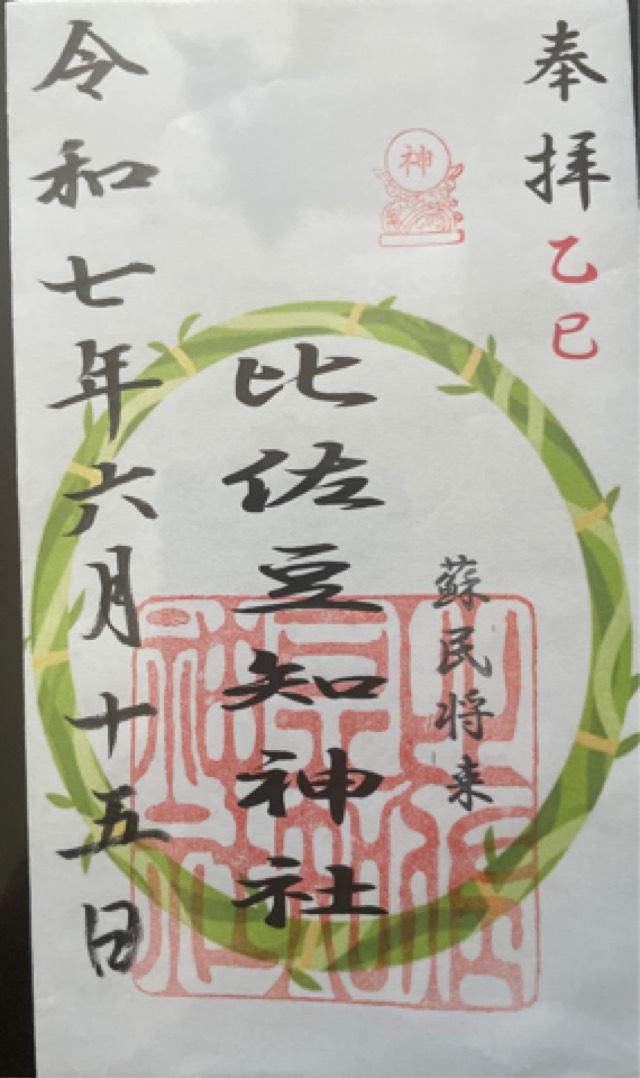 奉拝
乙巳
神
蘇民将来
比佐豆知神社
令和七年六月十五日